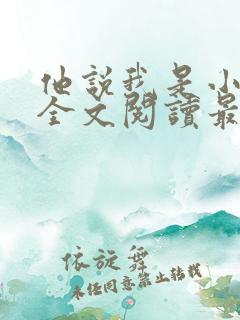 他說我是小
全文閱讀最
依旋舞
未經同意禁止轉載